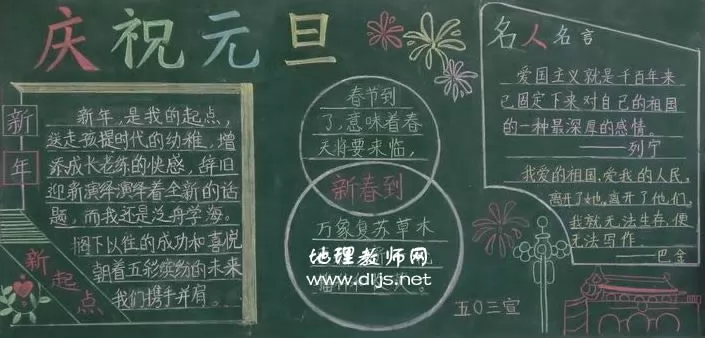 庆祝元旦
新年
新年,是我的起点,
送走孩提时代的幼稚,增
添成长老练的快感,辞旧
迎新演绎演绎着全新的话
题,而我还是泛舟学海。
阁下以往的成功和喜悦
朝着五彩缤纷的未来
我们携手并肩。
新起点
春节到
了,意味着春
天将要来临,
新春到
万象复苏草木
地理教师网
www.dljs.net
五〇三宣
名人名言
爱国主义就是千百年来
己固定下来对自己的祖国
的一种最深厚的感情。
——列宁
我爱的祖国,爱我的人民,
离开了她,离开了他们,
我就无法生存,便
无法写作
——巴金